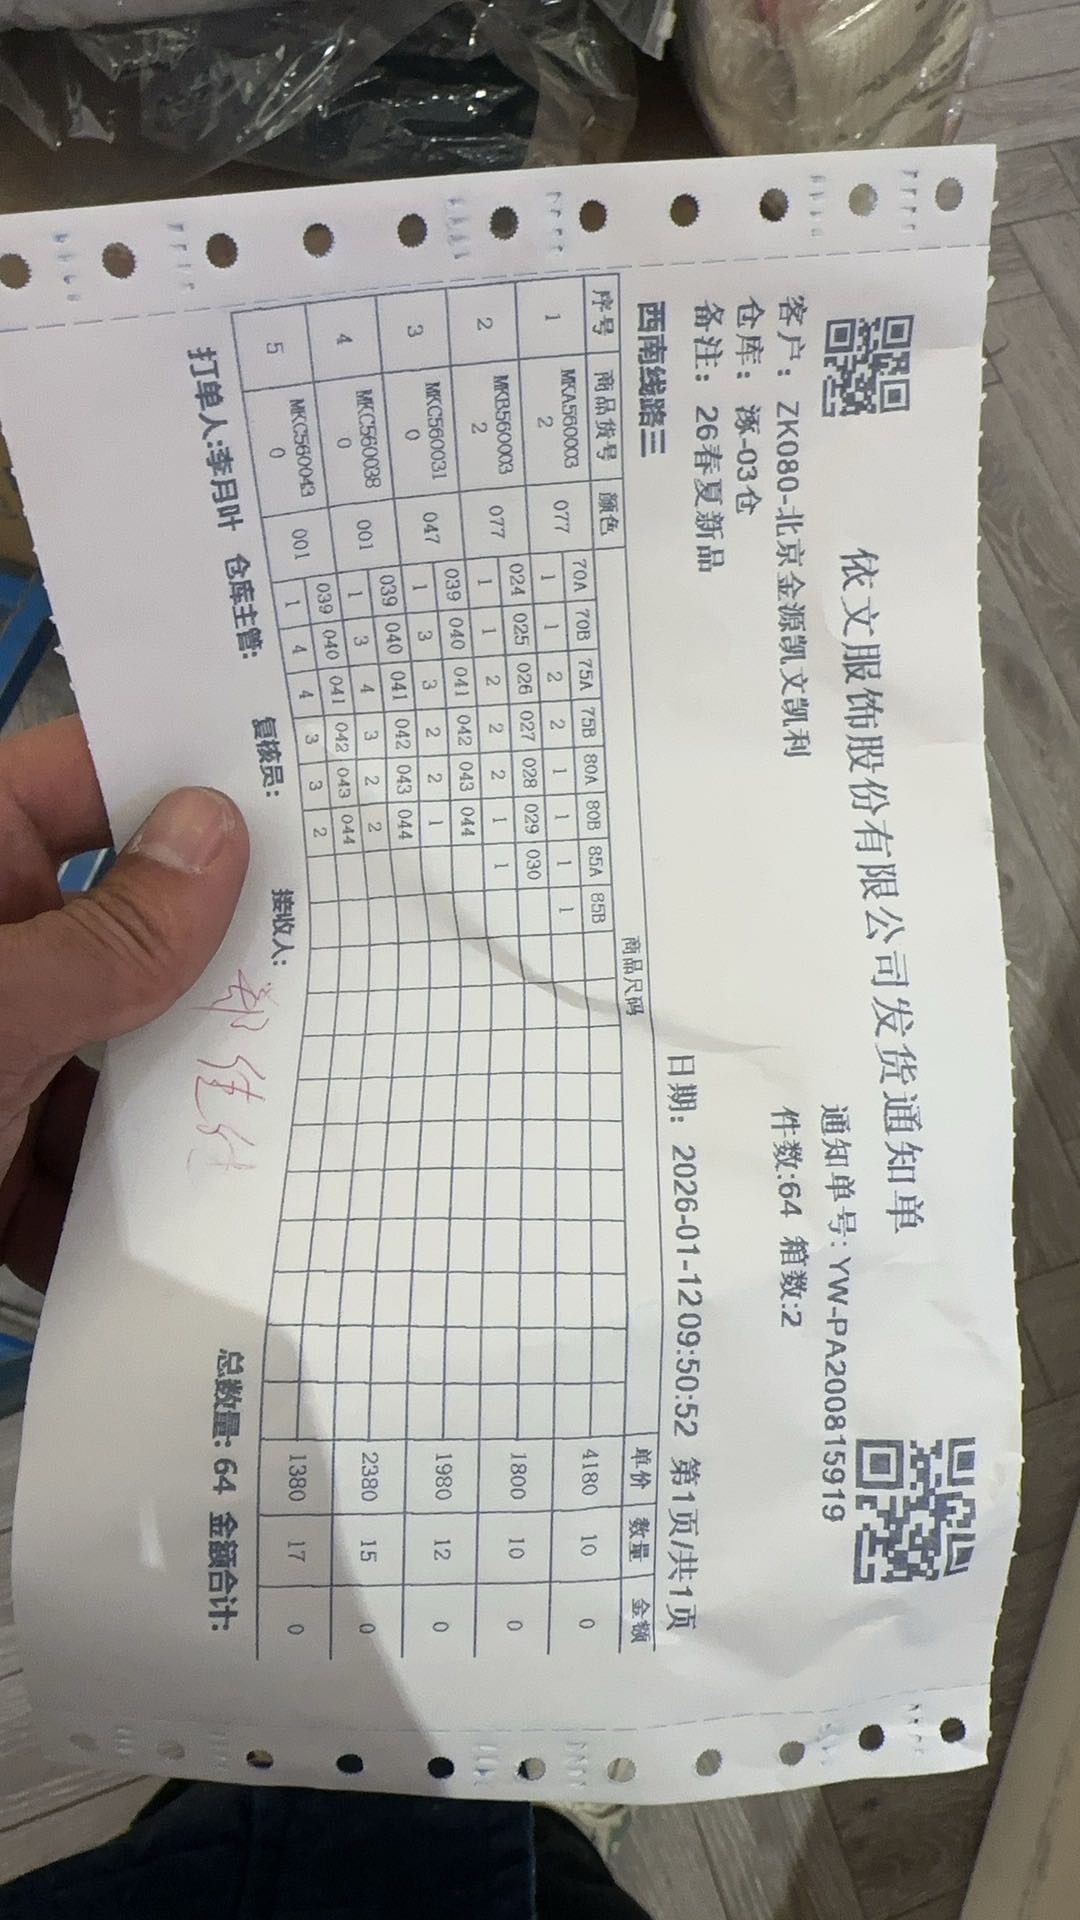 依文服饰股份有限公司发货通知单
通知单号:YW-PA200815919
客户：ZK080-北京金源凯文凯利
件数:64 箱数:2
仓库：涿-03仓
备注：26春夏新品
日期：2026-01-12 09:50:52 第1页/共1页
西南线路三
序号 商品货号 颜色 商品尺码 单价 数量 金额
70A 70B 75A 75B 80A 80B 85A 85B
1 MKA5600032 077 1 1 2 2 1 1 1 1 4180 10 0
024 025 026 027 028 029 030
2 MKB5600032 077 1 1 2 2 2 1 1 1800 10 0
039 040 041 042 043 044
3 MKC5600310 047 1 3 3 2 2 1 1980 12 0
039 040 041 042 043 044
4 MKC5600380 001 1 3 4 3 2 2 2380 15 0
039 040 041 042 043 044
5 MKC5600430 001 1 4 4 3 3 2 1380 17 0
打单人:李月叶 仓库主管: 复核员: 接收人: 总数量: 64 金额合计: